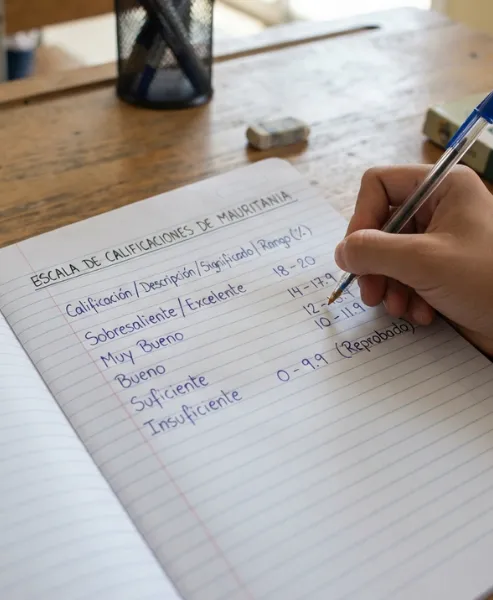 ESCALA DE CALIFICACIONES DE MAURITANIA
Calificación/Descripción/Significado/Rango(%)
Sobresaliente/Excelente 18-20
Muy Bueno 14-17.9
Bueno 12-
Suficiente 10-11.9
Insuficiente 0-9.9 (Reprobado)